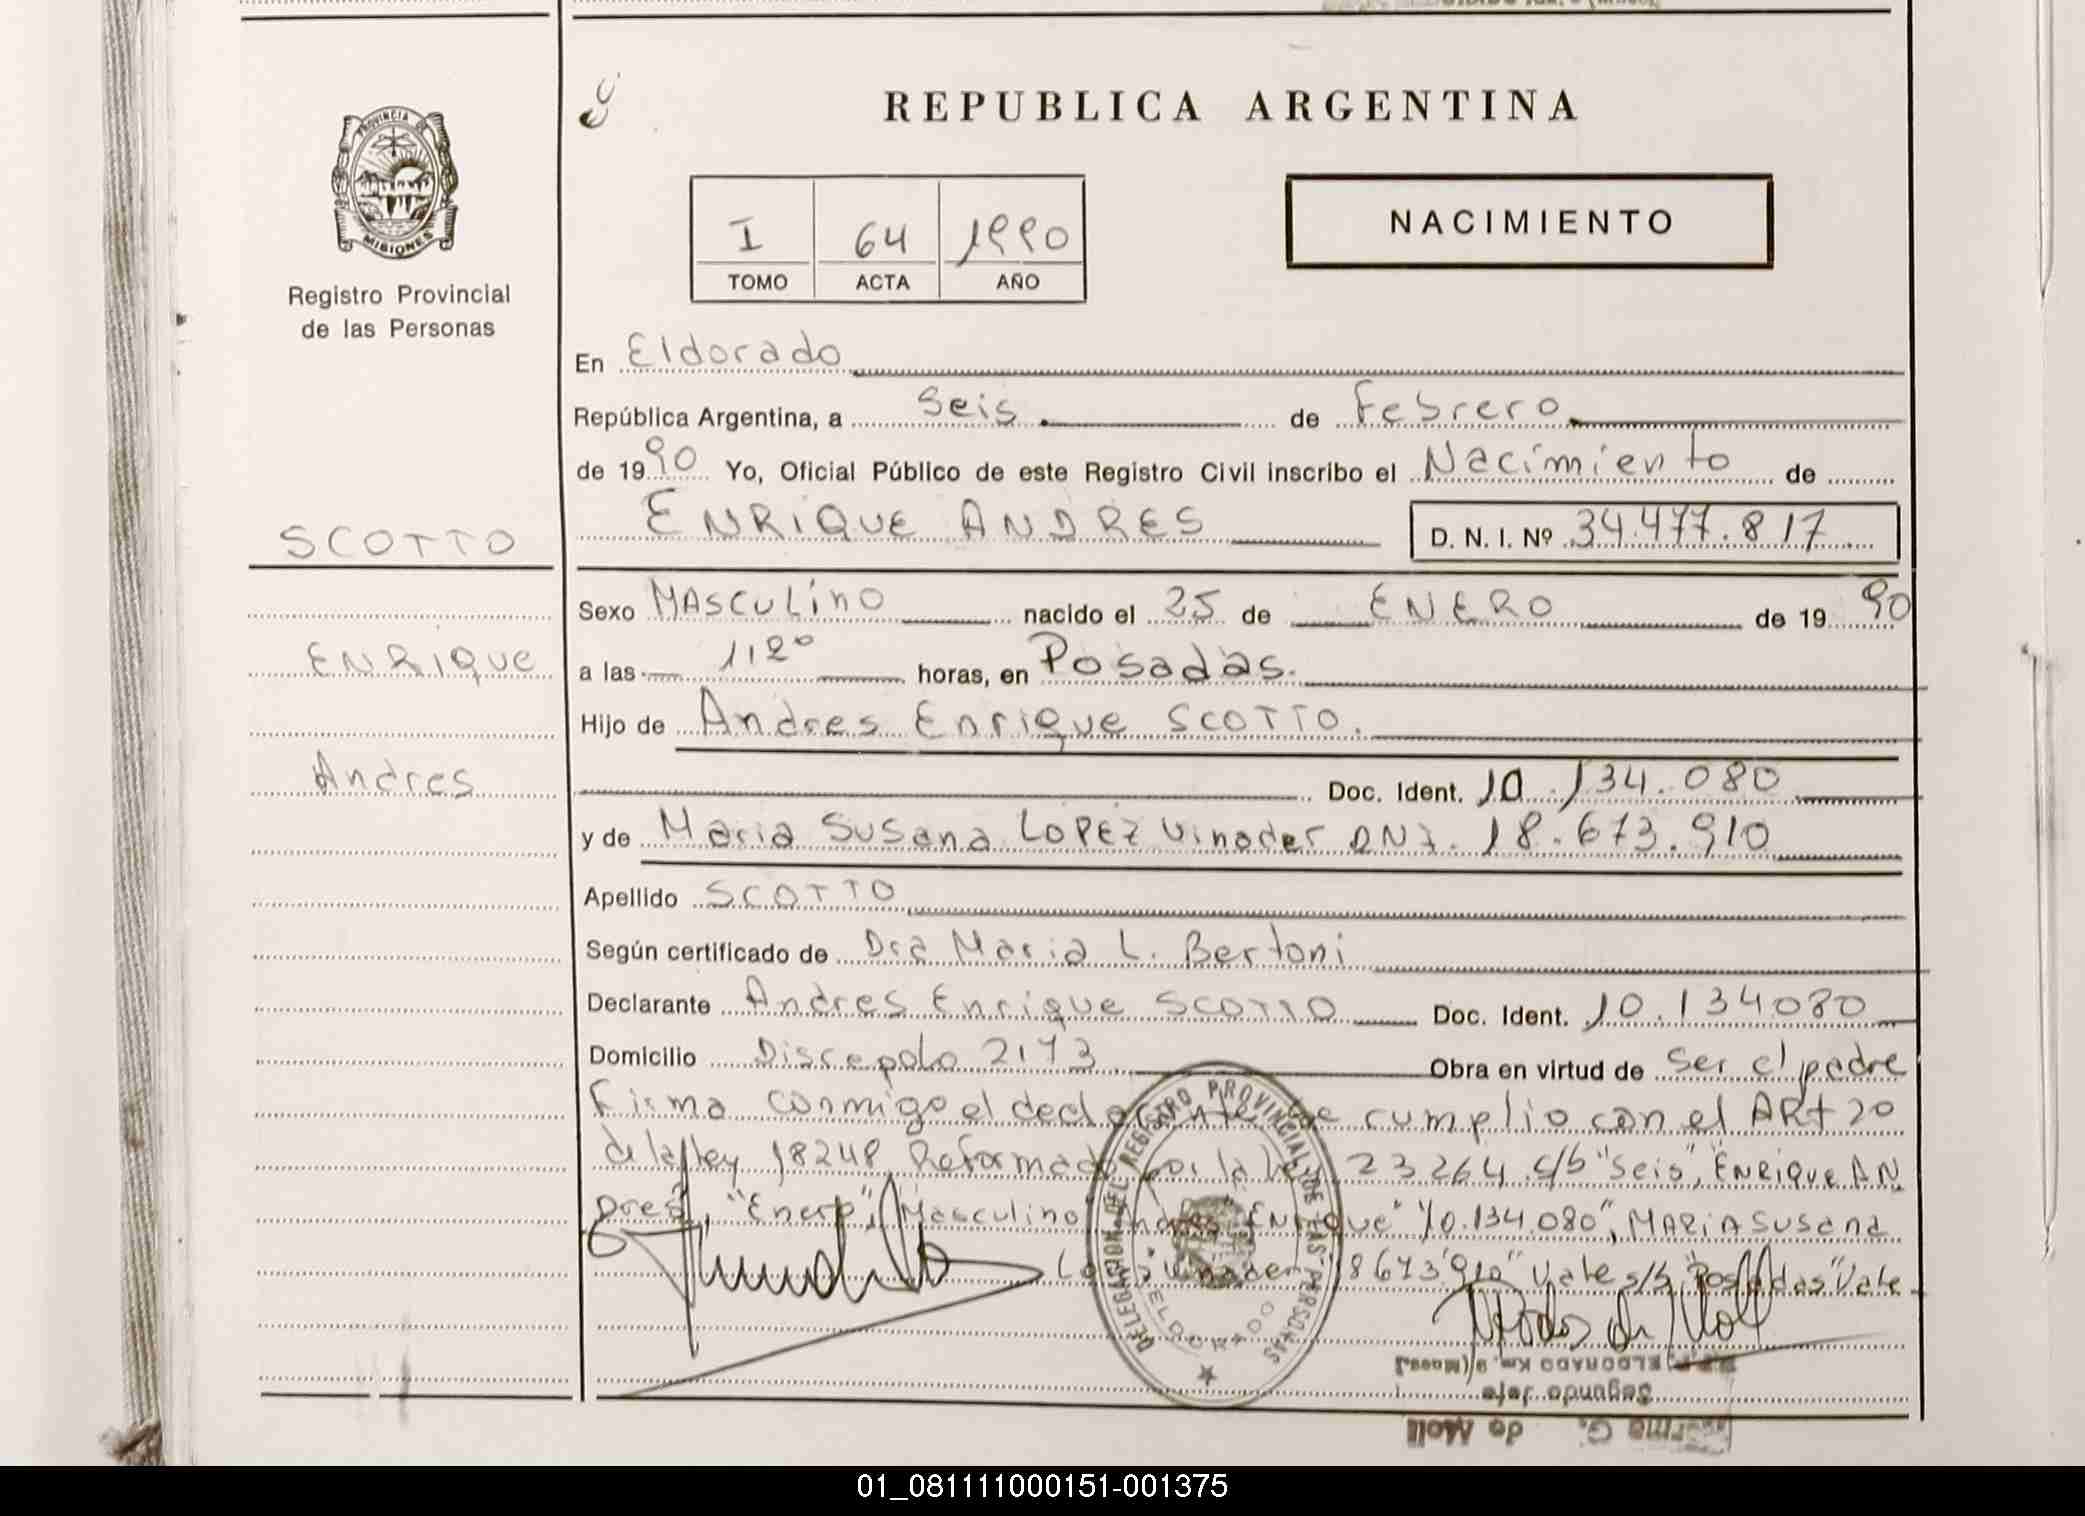 PROVINCIA DE
MISIONES
Registro Provincial
de las Personas
SCOTTO
ENRIQUE
Andres
REPUBLICA ARGENTINA
I 64 1990
TOMO ACTA AÑO
NACIMIENTO
En Eldorado
República Argentina, a Seis de Febrero
de 1990 Yo, Oficial Público de este Registro Civil inscribo el Nacimiento de
ENRIQUE ANDRES D. N. I. Nº 34.477.817
Sexo MASCULINO nacido el 25 de ENERO de 19 90
a las 1,20 horas, en Posadas.
Hijo de Andres Enrique SCOTTO.
Doc. Ident. 10.134.080
y de Maria Susana LOPEZ Vinader DNI. 18.673.910
Apellido SCOTTO
Según certificado de Dra Maria L. Bertoni
Declarante Andres Enrique SCOTTO Doc. Ident. 10.134080
Domicilio Discepolo 2173 Obra en virtud de Ser el padre
Firma conmigo el declarante se cumplio con el ARt 20
de la ley 18248 Reformado por la ley 23264 s/b "Seis", "ENRIQUE AN
Dres", "Enero", "Masculino" Andres ENrique" "10.134.080", MARIA Susana
Lopez Vinader 18673910" Vale s/b "Posadas" Vale
DELEGACION DEL REGISTRO PROVINCIAL DE LAS PERSONAS
ELDORADO
ELDORADO Km. 9 (Mnes.)
Segundo Jefe
G. de Moll
01_081111000151-001375